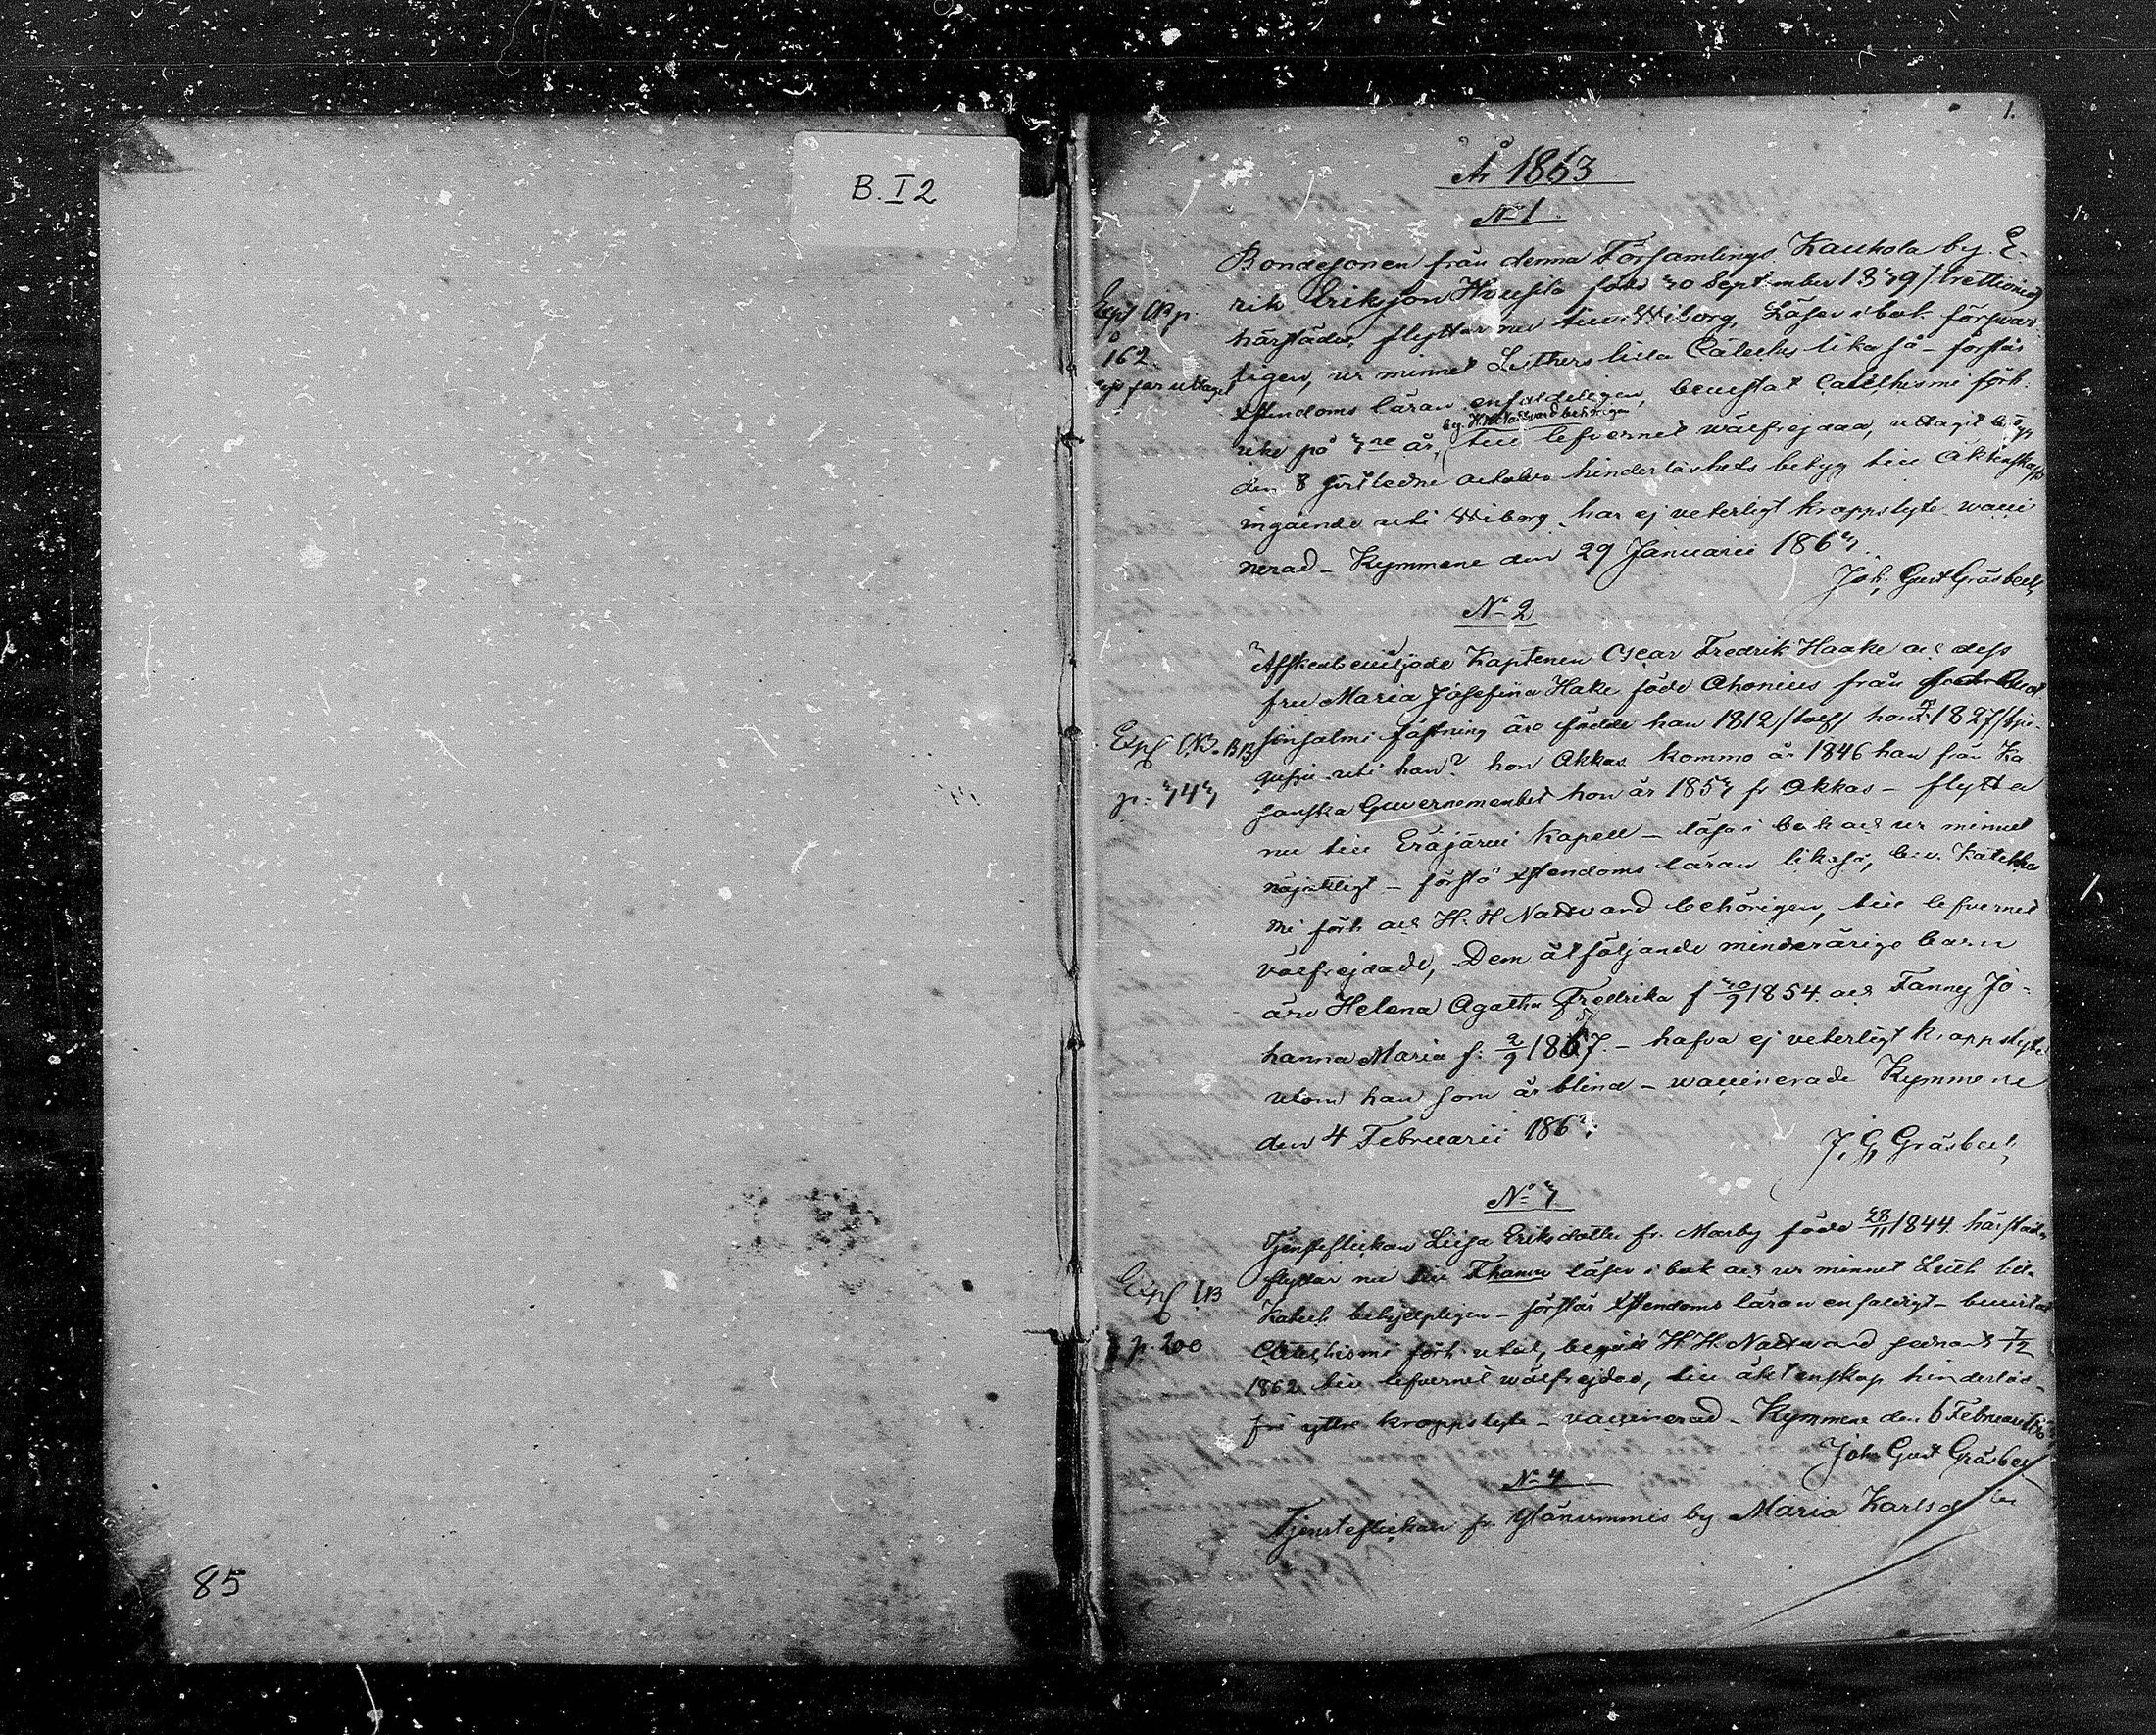 B. I 2
85
1.
År 1863
No 1.
Bondesonen från denna Församlings Kaukola by. E-
rik Eriksson född 30 September 1839 / trettionio
härstädes, flyttar nu till Wiborg, Läser i bok försvar
ligen, ur minnet Luthers lilla Cateches likaså - förstår
Xstendoms läran enfaldeligen, bevistat Catechismi förh.
by. H. H. Nattvard behörigen
rike på 3ne år, till lefvernet wälfrejdad, uttagit
den 8 sistledne october hinderlöshets betyg till äktenskaps
ingående uti Wiborg. har ej veterligt kroppslyte wacci
nerad - Kymmene den 29 Januarii 1863.
Joh. Gust Gräsbeck
Expd CB p.
162
No 2
Afskedbeviljade Kaptenen Oscar Fredrik Haake och dess
fru Maria Josefina Hake född Ahonius från
fästning äro födde han 1812 / tolf / hon 1827 / tju-
gusju uti han? hon Akkas kommo år 1846 han från Ka
sanska Guvernementet hon år 1853 fr Akkas - flytta
nu till Eräjärvi Kapell - läsa i bok och ur minnet
nöjaktligt - förstå Xstendoms läran likaså, bev. Katekhis
mi förh och H. H Nattvard behörigen, till lefvernet
välfrejdade, Dem åtföljande minderårige barn
äro Helena Agatha Fredrika f 30/9 1854 och Fanny Jo-
hanna Maria f. 2/9 1857. - hafva ej veterligt kroppslyte
utom han som är blind - waccinerade Kymmene
den 4 Februarii 1863.
J. G. Gräsbeck
Expd CB. BB
p. 343
No 3.
Tjensteflickan Liisa Eriksdotter fr. Marby född 28/11 1844. härstädes
flyttar nu till läser i bok och ur minnet Luth lilla
Katech behjelpligen - förstår Xstendoms läran enfaldigt - bevistat
Catechismi förh begått H. H. Nattvard sednast 7/12
1862 till lefvernet wälfrejdad, till äktenskap hinderlös -
fri yttre kroppslyte - vaccinerad - Kymmene den 6 Februarii
Joh Gust Gräsbeck
Expd CB
p. 200
No 4
Tjensteflickan fr by Maria Karlsd